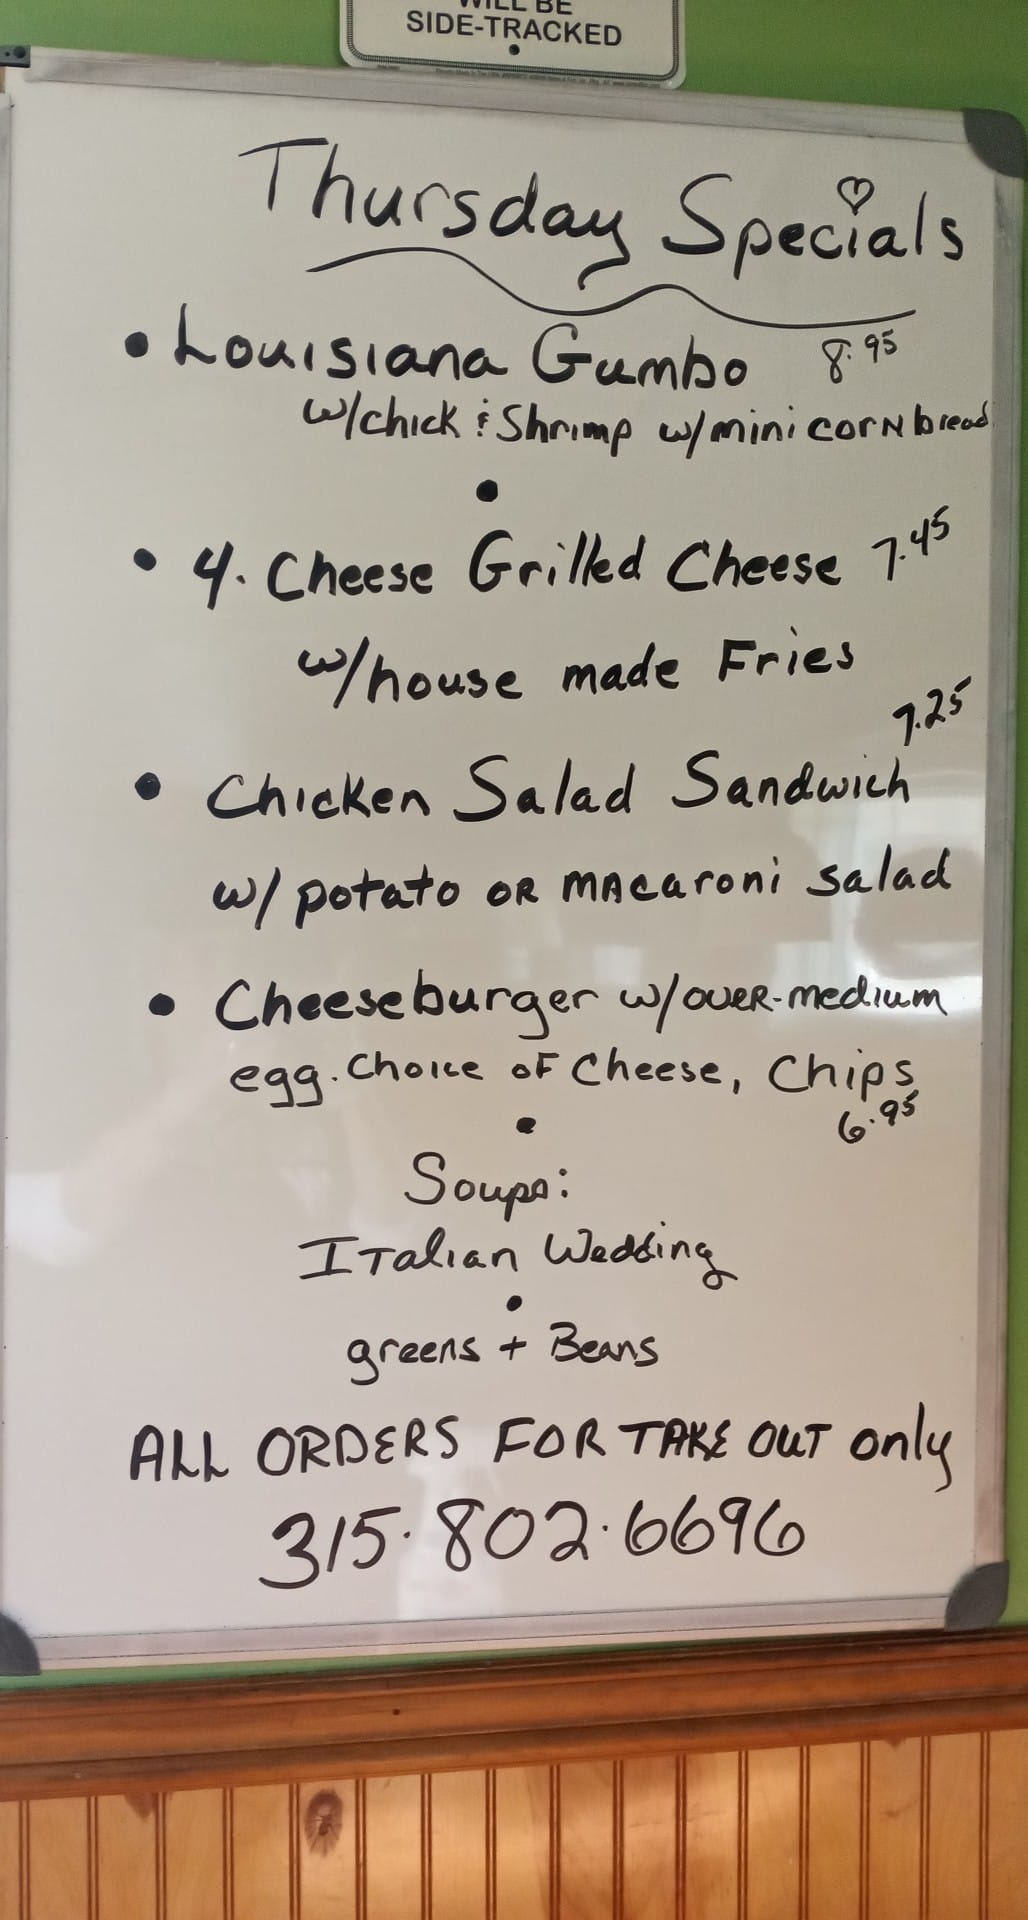 WILL BE
SIDE-TRACKED
Thursday Specials
• Louisiana Gumbo 8.95
w/chick & Shrimp w/mini corn bread
•
• 4. Cheese Grilled Cheese 7.45
w/house made Fries
7.25
• Chicken Salad Sandwich
w/ potato OR MAcaroni salad
• Cheeseburger w/over-medium
egg. Choice of Cheese, Chips
6.95
•
Soups:
Italian Wedding
•
greens + Beans
ALL ORDERS FOR TAKE OUT only
315.802.6696